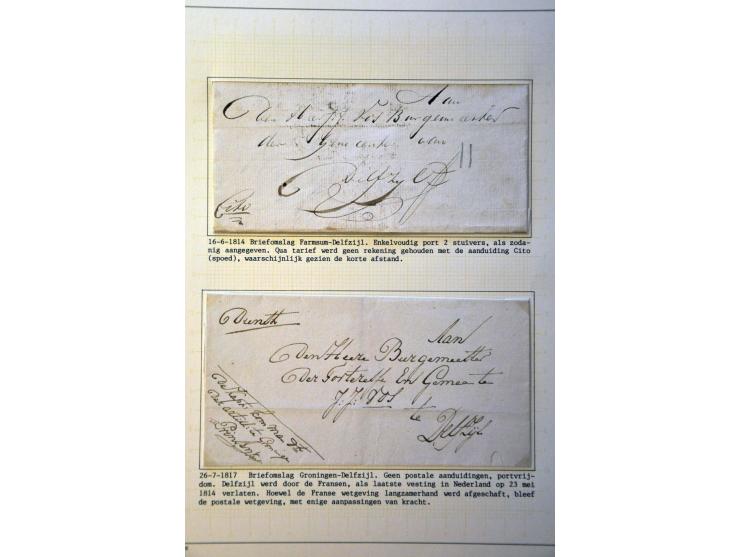 Aan
Den Heer J.J. Vos Burgemeester
der Gemeente van
Delfzyl
11
Cito
16-6-1814 Briefomslag Farmsum-Delfzijl. Enkelvoudig port 2 stuivers, als zoda-
nig aangegeven. Qua tarief werd geen rekening gehouden met de aanduiding Cito
(spoed), waarschijnlijk gezien de korte afstand.
Dienst
Aan
Den Heere Burgemeester
Der Forteresse En Gemeente
J.J. Vos
te
Delfzijl
26-7-1817 Briefomslag Groningen-Delfzijl. Geen postale aanduidingen, portvrij-
dom. Delfzijl werd door de Fransen, als laatste vesting in Nederland op 23 mei
1814 verlaten. Hoewel de Franse wetgeving langzamerhand werd afgeschaft, bleef
de postale wetgeving, met enige aanpassingen van kracht.